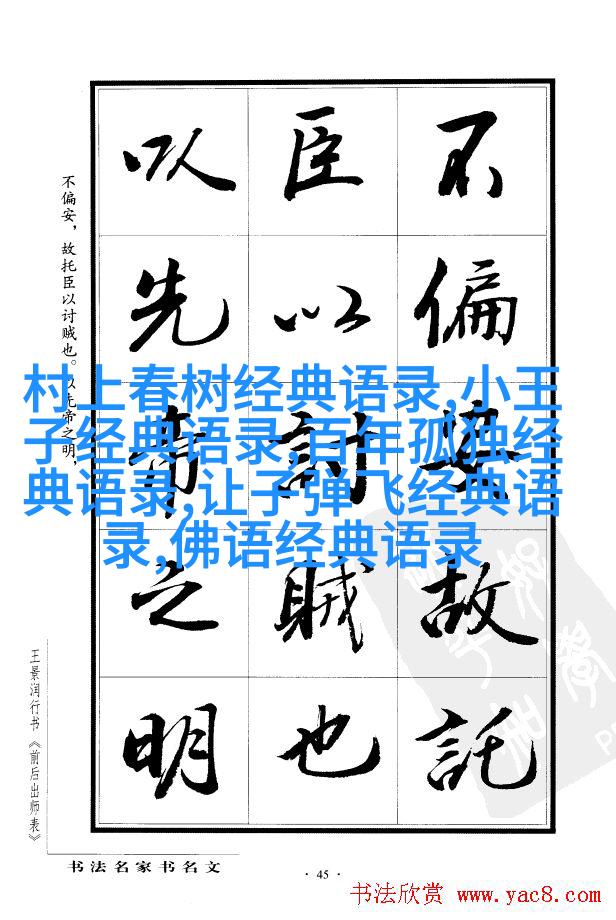 不偏安故託
臣以討賊也
以先帝之明
不偏安，故托臣以讨贼也。以先帝之明，
村上春树经典语录,小王
子经典语录,百年孤独经
典语录,让子弹飞经典语
录,佛语经典语录
王景润行书《前后出师表》
书法名家书名文
· 45 ·
书法欣赏 www.yac8.com